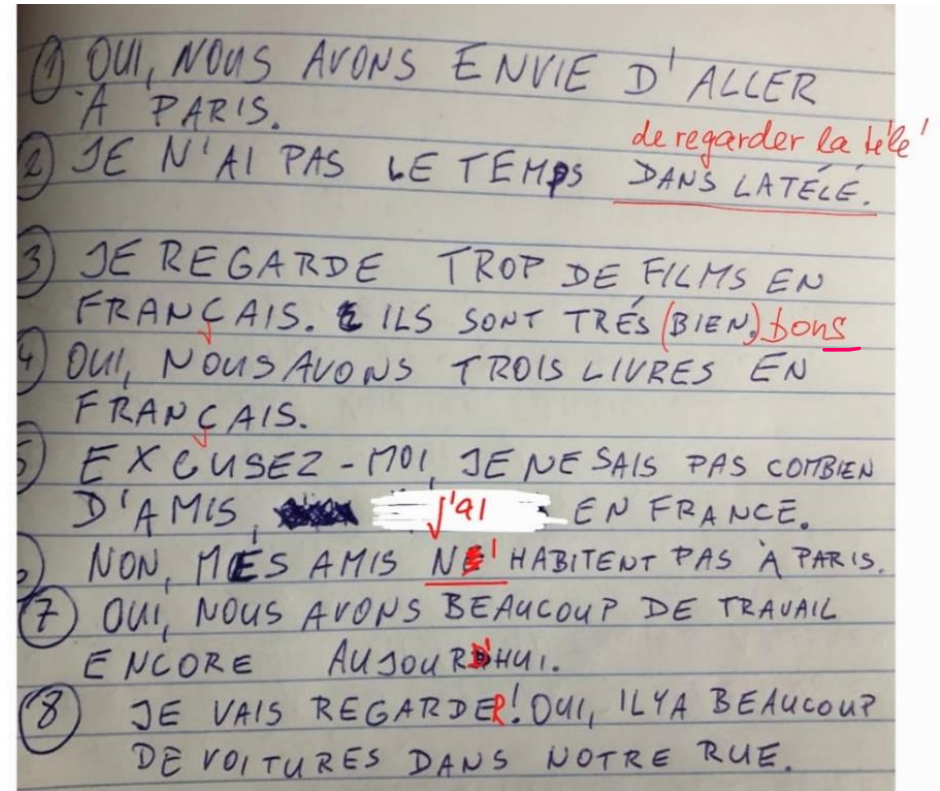 ① OUI, NOUS AVONS ENVIE D'ALLER
À PARIS.
de regarder la télé
② JE N'AI PAS LE TEMPS DANS LA TÉLÉ.
3) JE REGARDE TROP DE FILMS EN
FRANÇAIS. ILS SONT TRÉS (BIEN.) bons
4) OUI, NOUS AVONS TROIS LIVRES EN
FRANÇAIS.
5) EXCUSEZ-MOI, JE NE SAIS PAS COMBIEN
D'AMIS, j'ai EN FRANCE.
NON, MES AMIS N'HABITENT PAS À PARIS.
⑦ OUI, NOUS AVONS BEAUCOUP DE TRAVAIL
ENCORE AUJOURD'HUI.
⑧ JE VAIS REGARDER! OUI, IL Y A BEAUCOUP
DE VOITURES DANS NOTRE RUE.